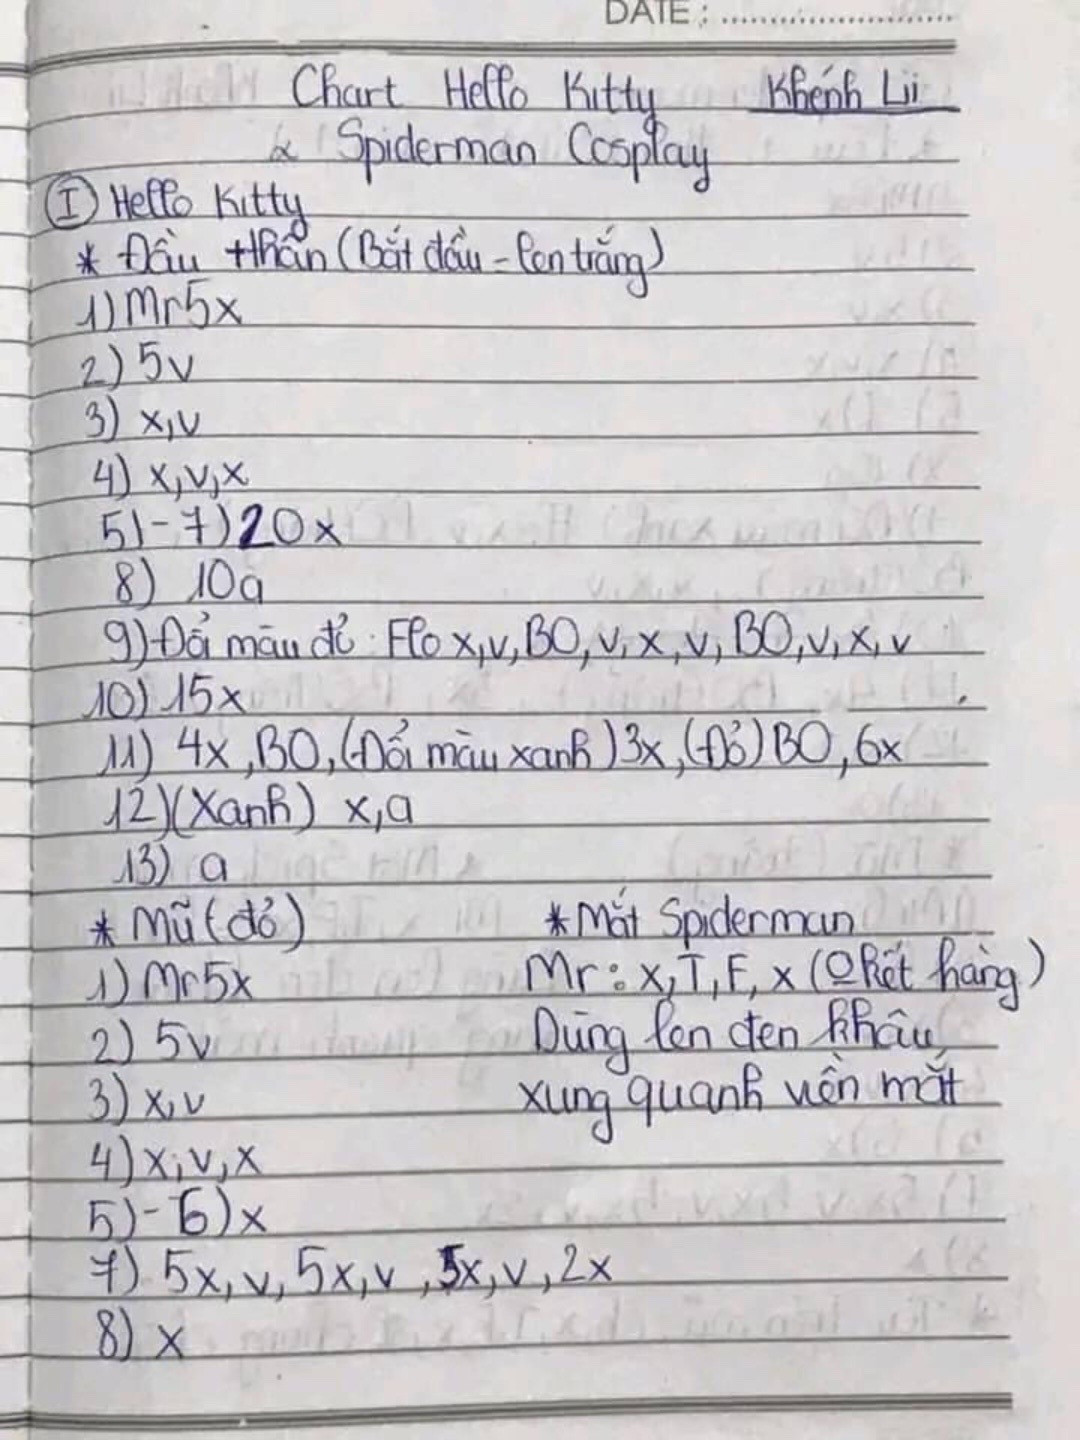 DATE : ..............................
Chart Hello Kitty Khénh Lii
& Spiderman Cosplay
I Hello Kitty
* Đầu thân (Bắt đầu - len trắng)
1) Mr5x
2) 5v
3) x,v
4) x,v,x
5)-7) 20x
8) 10a
9) Đổi màu đỏ: Flo x,v,BO,v,x,v,BO,v,x,v
10) 15x
11) 4x,BO,(Đổi màu xanh)3x,(đỏ)BO,6x
12)(Xanh) x,a
13) a
* Mũ (đỏ) * Mắt Spiderman
1) Mr5x Mr: x,T,F,x (0 kết hàng)
2) 5v Dùng len đen khâu
3) x,v xung quanh viền mắt
4) x,v,x
5)-6) x
7) 5x,v,5x,v,5x,v,2x
8) x